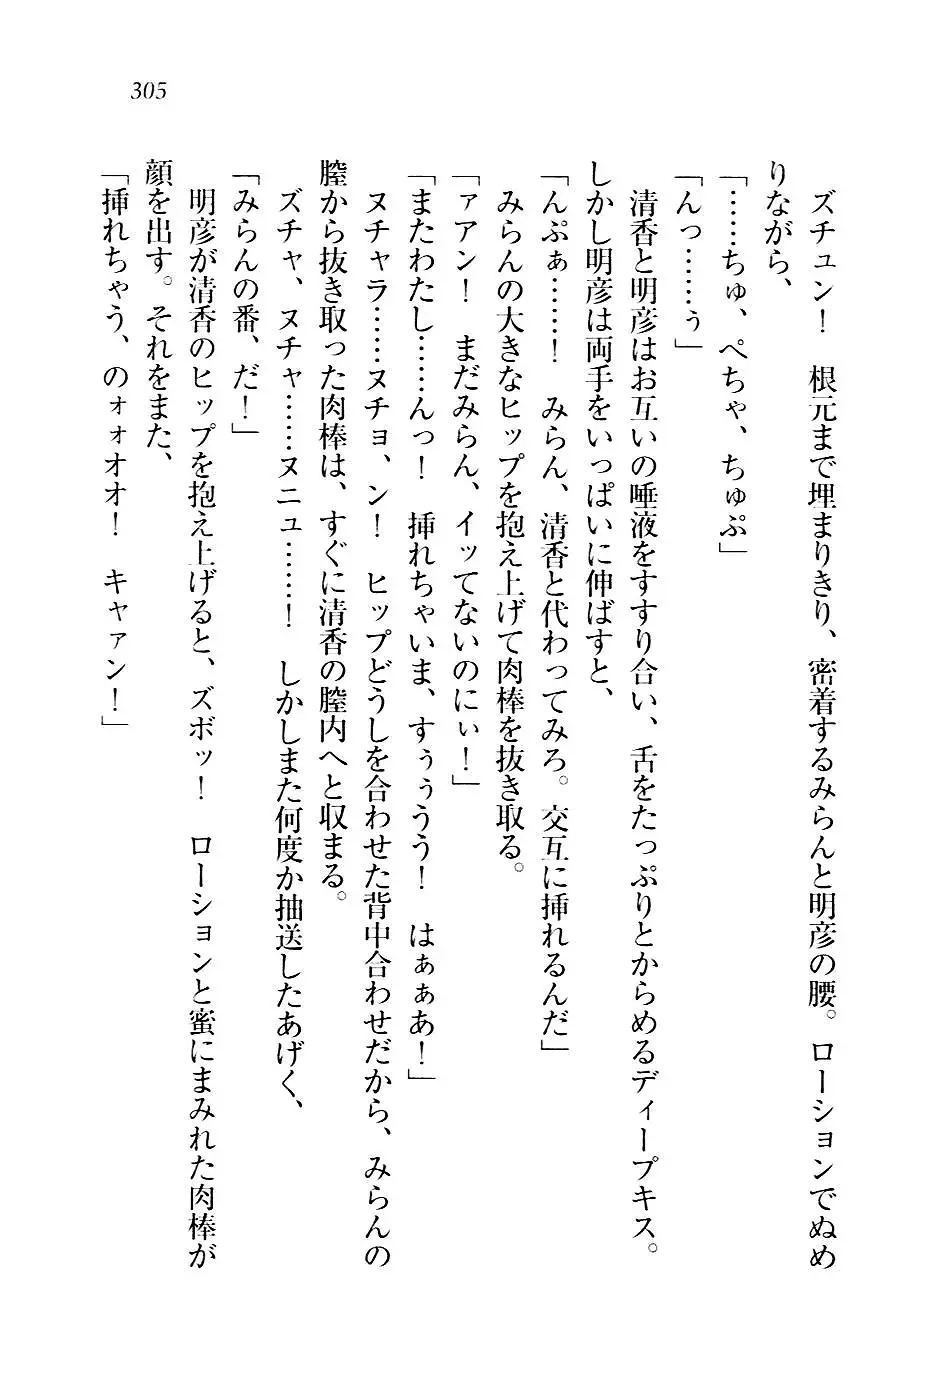 305
ズチュン！　根元まで埋まりきり、密着するみらんと明彦の腰。ローションでぬめ
りながら、
「……ちゅ、ぺちゃ、ちゅぷ」
「んっ……ぅ」
清香と明彦はお互いの唾液をすすり合い、舌をたっぷりとからめるディープキス。
しかし明彦は両手をいっぱいに伸ばすと、
「んぷぁ……！　みらん、清香と代わってみろ。交互に挿れるんだ」
みらんの大きなヒップを抱え上げて肉棒を抜き取る。
「ァアン！　まだみらん、イッてないのにぃ！」
「またわたし……んっ！　挿れちゃいま、すぅぅうう！　はぁぁあ！」
ヌチャラ……ヌチョ、ン！　ヒップどうしを合わせた背中合わせだから、みらんの
膣から抜き取った肉棒は、すぐに清香の膣内へと収まる。
ズチャ、ヌチャ……ヌニュ……！　しかしまた何度か抽送したあげく、
「みらんの番、だ！」
明彦が清香のヒップを抱え上げると、ズボッ！　ローションと蜜にまみれた肉棒が
顔を出す。それをまた、
「挿れちゃう、のォォオオ！　キャァン！」